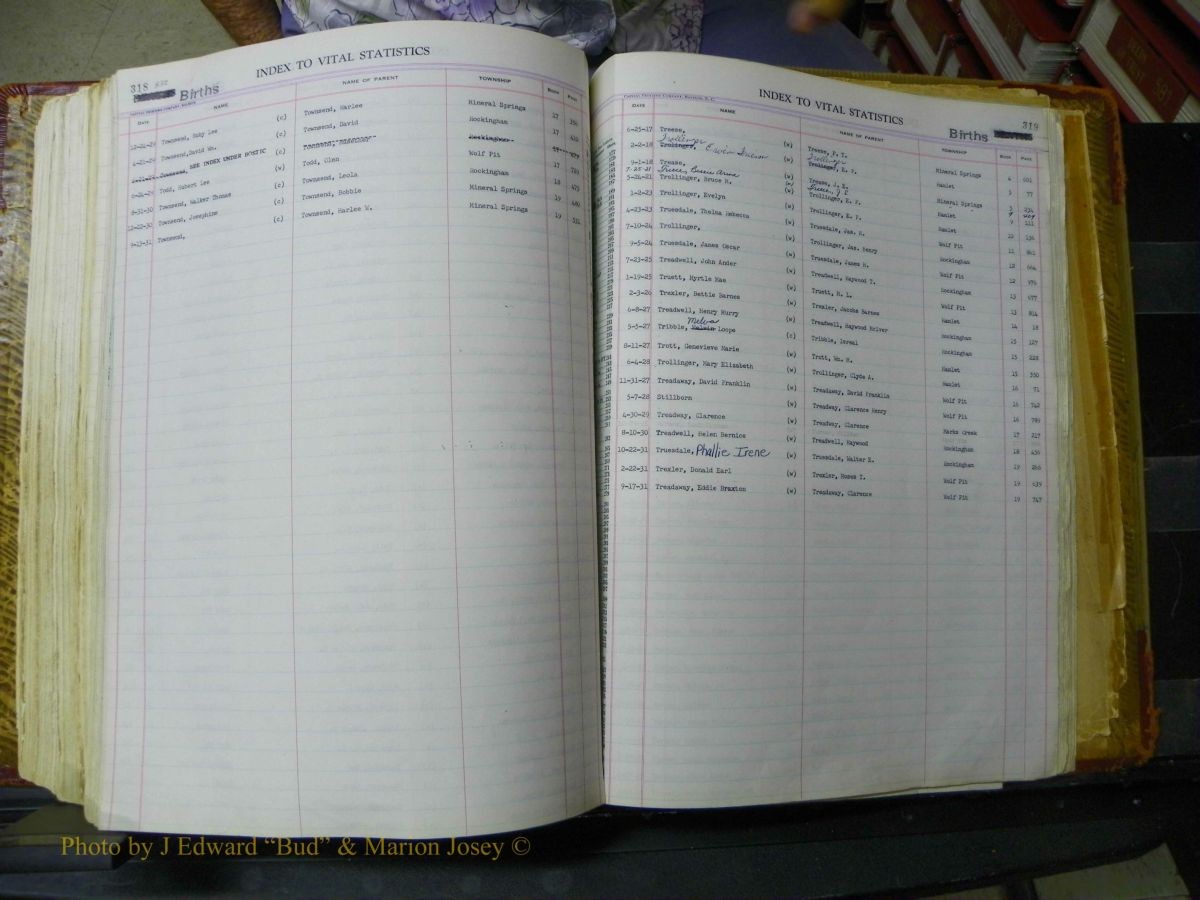 318
Births
INDEX TO VITAL STATISTICS
DATE NAME NAME OF PARENT TOWNSHIP BOOK PAGE
12-24-29 Townsend, Ruby Lee (c) Townsend, Harlee Mineral Springs 17
4-21-29 Townsend, David Wm. (c) Townsend, David Rockingham 17
Townsend, SEE INDEX UNDER BOSTIC (c) Rockingham
Todd, Hubert Lee (w) Todd, Glen Wolf Pit 17
8-31-30 Townsend, Walker Thomas (c) Townsend, Leola Rockingham 18 475
12-22-30 Townsend, Josephine (c) Townsend, Bobbie Mineral Springs 19
9-13-31 Townsend, (c) Townsend, Harlee W. Mineral Springs 19
INDEX TO VITAL STATISTICS
319
Births
DATE NAME NAME OF PARENT TOWNSHIP BOOK PAGE
6-25-17 Treese, (w) Treese, Mineral Springs 4 601
Trollinger Trollinger
2-2-18 Trollinger, (w) Trollinger, E. P. Hamlet 5 77
9-1-18 Treese, (w) Treese, J. E. Mineral Springs
7-25-21
5-24-21 Trollinger, Bruce H. (w) Trollinger, E. P. Hamlet 9 111
1-2-23 Trollinger, Evelyn (w) Trollinger, E. P. Hamlet 10
4-23-23 Truesdale, Thelma Rebecca (w) Truesdale, Jas. H. Wolf Pit 11
7-10-24 Trollinger, (w) Trollinger, Jas. Henry Rockingham 12
9-5-24 Truesdale, James Oscar (w) Truesdale, James H. Wolf Pit 12
7-23-25 Treadwell, John Ander (w) Treadwell, Haywood T. Rockingham 13 477
1-19-25 Truett, Myrtle Mae (w) Truett, H. L. Wolf Pit 13 814
2-3-26 Trexler, Bettie Barnes (w) Trexler, Jacobs Barnes Hamlet 14 18
6-8-27 Treadwell, Henry Murry (w) Treadwell, Haywood McIver Rockingham 15 127
Melva
5-5-27 Tribble, Loops (c) Tribble, Rockingham 15 228
8-11-27 Trott, Genevieve Marie (w) Trott, Wm. H. Hamlet 15 350
6-4-28 Trollinger, Mary Elizabeth (w) Trollinger, Clyde A. Hamlet 16 71
11-31-27 Treadaway, David Franklin (w) Treadaway, David Franklin Wolf Pit 16 742
5-7-28 Stillborn (w) Treadway, Clarence Henry Wolf Pit 16 789
4-30-29 Treadway, Clarence (w) Treadway, Clarence Marks Creek 17 217
8-10-30 Treadwell, Helen Bernice (w) Treadwell, Haywood Rockingham 18 456
10-22-31 Truesdale, Phallie Irene (w) Truesdale, Walter E. Rockingham 19 266
2-22-31 Trexler, Donald Earl (w) Trexler, Hosea T. Wolf Pit 19 639
9-17-31 Treadaway, Eddie Braxton (w) Treadaway, Clarence Wolf Pit 19 747
Photo by J Edward “Bud” & Marion Josey ©